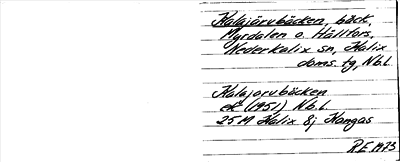 Kalajärvbäcken, bäck,
Myrdalen o. Hällfors,
Nederkalix sn, Kalix
doms. tg, Nb.l.
Kalajarvbäcken
ek (1951) Nb.l.
25M Kalix 8j Kangas
RE 1973